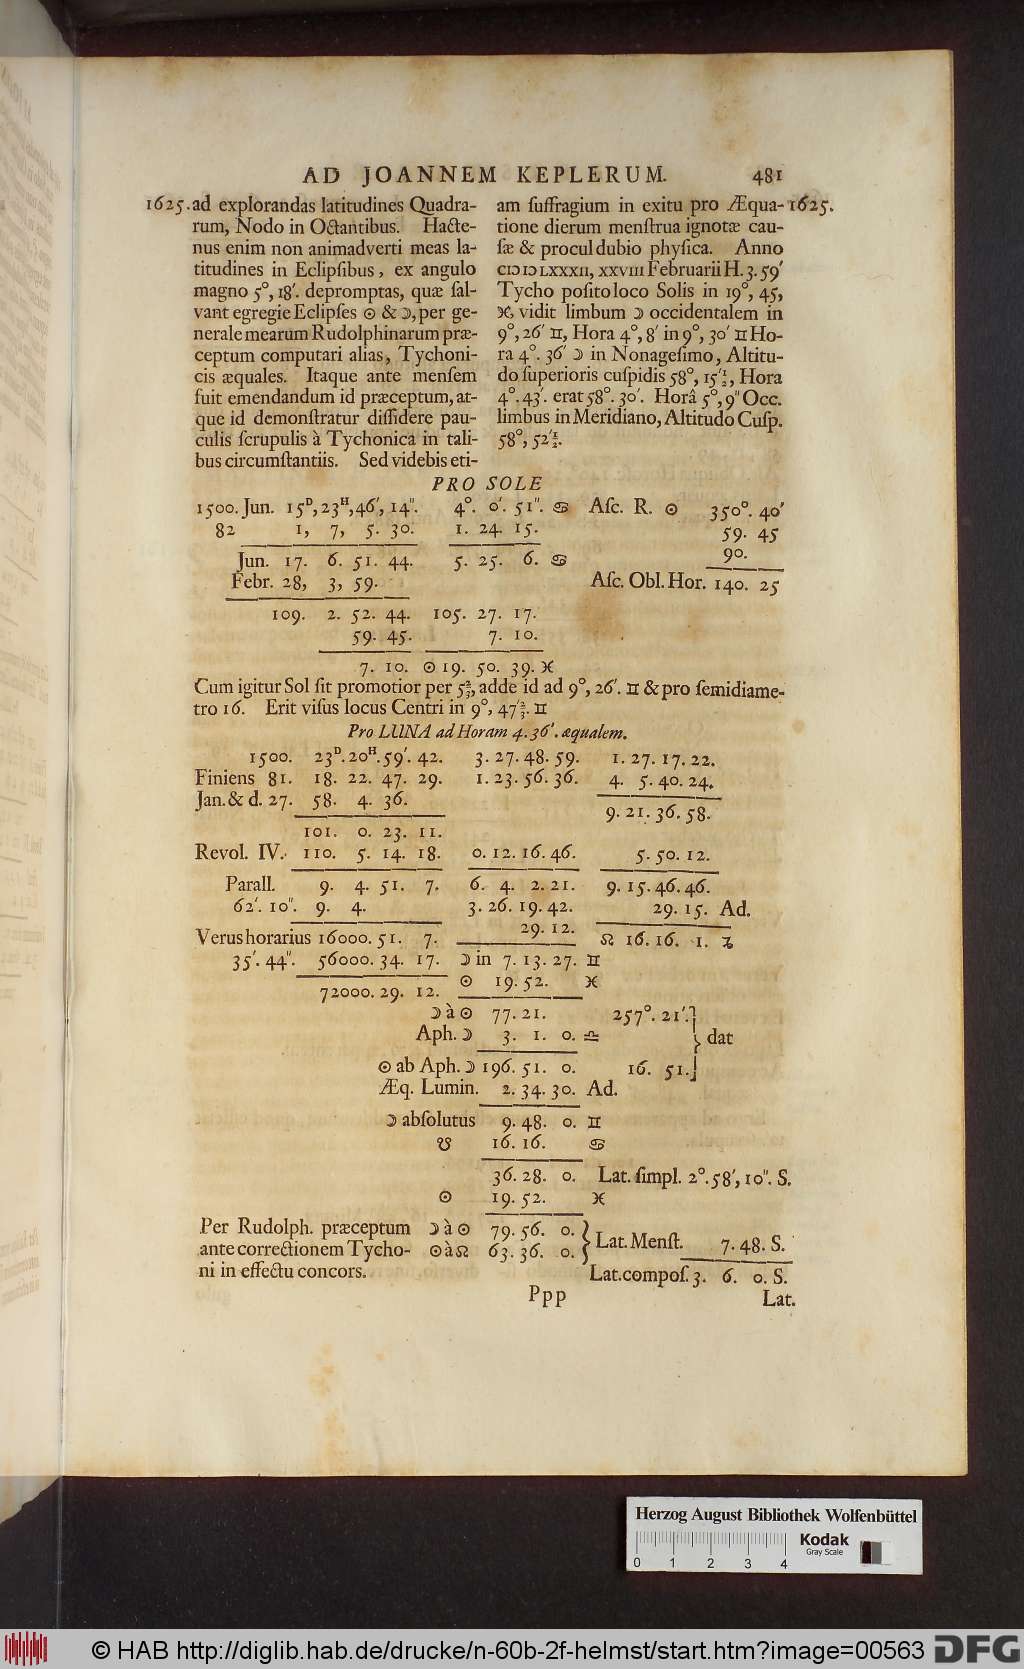 AD JOANNEM KEPLERUM. 481
1625. ad explorandas latitudines Quadra-
rum, Nodo in Octantibus. Hacte-
nus enim non animadverti meas la-
titudines in Eclipſibus, ex angulo
magno 5°, 18′. depromptas, quæ ſal-
vant egregie Eclipſes ☉ & ☽, per ge-
nerale mearum Rudolphinarum præ-
ceptum computari alias, Tychoni-
cis æquales. Itaque ante menſem
fuit emendandum id præceptum, at-
que id demonſtratur diſſidere pau-
culis ſcrupulis à Tychonica in tali-
bus circumſtantiis. Sed videbis eti-
am ſuffragium in exitu pro Æqua- 1625.
tione dierum menſtrua ignotæ cau-
ſæ & procul dubio phyſica. Anno
CIↃ IↃ LXXXII, XXVIII Februarii H. 3. 59′
Tycho poſito loco Solis in 19°, 45,
♓, vidit limbum ☽ occidentalem in
9°, 26′ ♊, Hora 4°, 8′ in 9°, 30′ ♊ Ho-
ra 4°. 36′ ☽ in Nonageſimo, Altitu-
do ſuperioris cuſpidis 58°, 15′½, Hora
4°. 43′. erat 58°. 30′. Horâ 5°, 9″ Occ.
limbus in Meridiano, Altitudo Cuſp.
58°, 52′½.
PRO SOLE
1500. Jun. 15ᴰ, 23ᴴ, 46′, 14″. 4°. 0′. 51″. ♋ Aſc. R. ☉ 350°. 40′
82 1, 7, 5. 30. 1. 24. 15. 59. 45
90.
Jun. 17. 6. 51. 44. 5. 25. 6. ♋
Febr. 28, 3, 59. Aſc. Obl. Hor. 140. 25
109. 2. 52. 44. 105. 27. 17.
59. 45. 7. 10.
7. 10. ☉ 19. 50. 39. ♓
Cum igitur Sol ſit promotior per 5′⅔, adde id ad 9°, 26′. ♊ & pro ſemidiame-
tro 16. Erit viſus locus Centri in 9°, 47′⅔. ♊
Pro LUNA ad Horam 4. 36′. æqualem.
1500. 23ᴰ. 20ᴴ. 59′. 42. 3. 27. 48. 59. 1. 27. 17. 22.
Finiens 81. 18. 22. 47. 29. 1. 23. 56. 36. 4. 5. 40. 24.
Jan. & d. 27. 58. 4. 36.
9. 21. 36. 58.
101. 0. 23. 11.
Revol. IV. 110. 5. 14. 18. 0. 12. 16. 46. 5. 50. 12.
Parall. 9. 4. 51. 7. 6. 4. 2. 21. 9. 15. 46. 46.
62′. 10″. 9. 4. 3. 26. 19. 42. 29. 15. Ad.
29. 12.
Verus horarius 16000. 51. 7. ☊ 16. 16. 1. ♑
35′. 44″. 56000. 34. 17. ☽ in 7. 13. 27. ♊
☉ 19. 52. ♓
72000. 29. 12.
☽ à ☉ 77. 21. 257°. 21′. } dat
Aph. ☽ 3. 1. 0. ♎
☉ ab Aph. ☽ 196. 51. 0. 16. 51.
Æq. Lumin. 2. 34. 30. Ad.
☽ abſolutus 9. 48. 0. ♊
☋ 16. 16. ♋
36. 28. 0. Lat. ſimpl. 2°. 58′, 10″. S.
☉ 19. 52. ♓
Per Rudolph. præceptum ☽ à ☉ 79. 56. 0. } Lat. Menſt. 7. 48. S.
ante correctionem Tycho- ☉ à ☊ 63. 36. 0.
ni in effectu concors. Lat. compoſ. 3. 6. 0. S.
Ppp Lat.
Herzog August Bibliothek Wolfenbüttel
0 1 2 3 4
Kodak
Gray Scale
© HAB http://diglib.hab.de/drucke/n-60b-2f-helmst/start.htm?image=00563
DFG